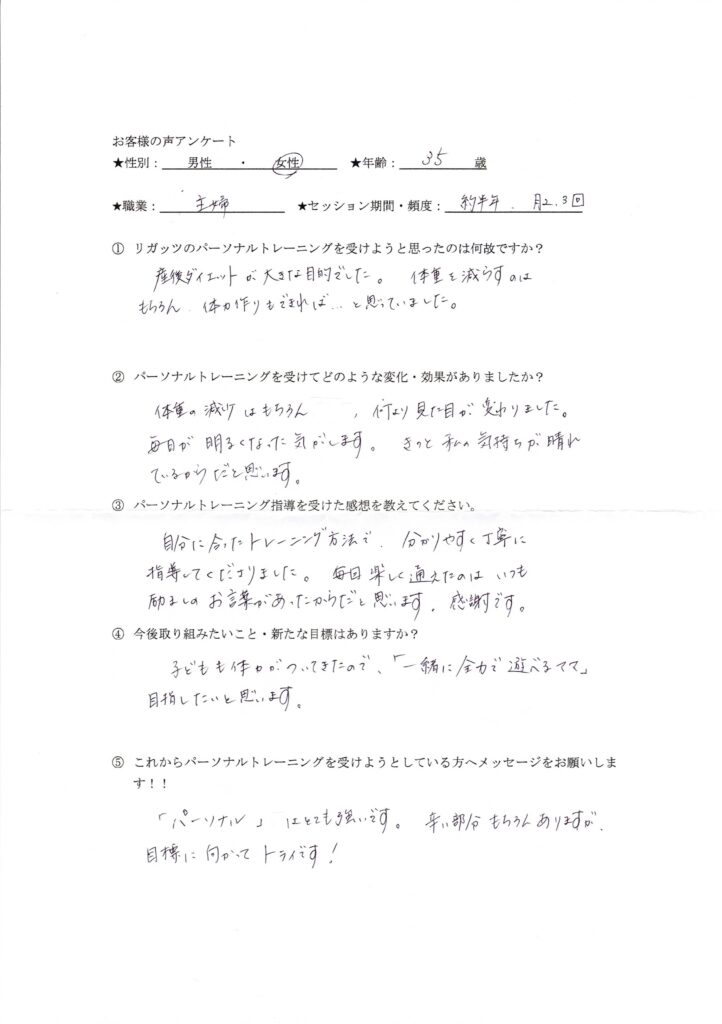 お客様の声アンケート
★性別： 男性 ・ 女性 ★年齢： 35 歳
★職業： 主婦 ★セッション期間・頻度： 約半年． 月2.3回
① リガッツのパーソナルトレーニングを受けようと思ったのは何故ですか？
産後ダイエットが大きな目的でした。 体重を減らすのは
もちろん、体力作りもできれば…と思っていました。
② パーソナルトレーニングを受けてどのような変化・効果がありましたか？
体重の減りはもちろん ，何より見た目が変わりました。
毎日が明るくなった気がします。 きっと私の気持ちが晴れ
ているからだと思います。
③ パーソナルトレーニング指導を受けた感想を教えてください。
自分に合ったトレーニング方法で、分かりやすく丁寧に
指導してくださりました。 毎回楽しく通えたのはいつも
励ましのお言葉があったからだと思います。感謝です。
④ 今後取り組みたいこと・新たな目標はありますか？
子どもも体力がついてきたので、「一緒に全力で遊べるママ」
目指したいと思います。
⑤ これからパーソナルトレーニングを受けようとしている方へメッセージをお願いしま
す！！
「パーソナル」 はとても強いです。 辛い部分もちろんありますが、
目標に向かってトライです！